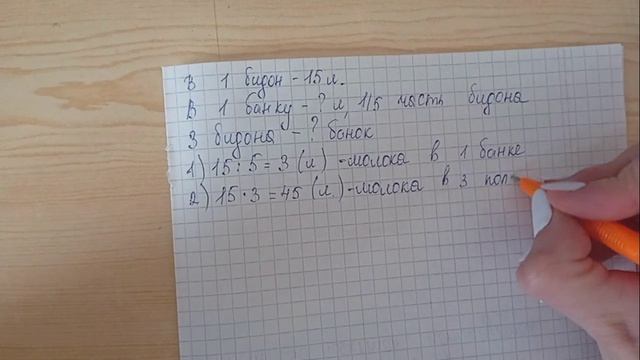 В 1 бидон - 15 л.
В 1 банку - ? л, 1/5 часть бидона
3 бидона - ? банок
1) 15 : 5 = 3 (л) - молока в 1 банке
2) 15 · 3 = 45 (л.) - молока в 3 пол